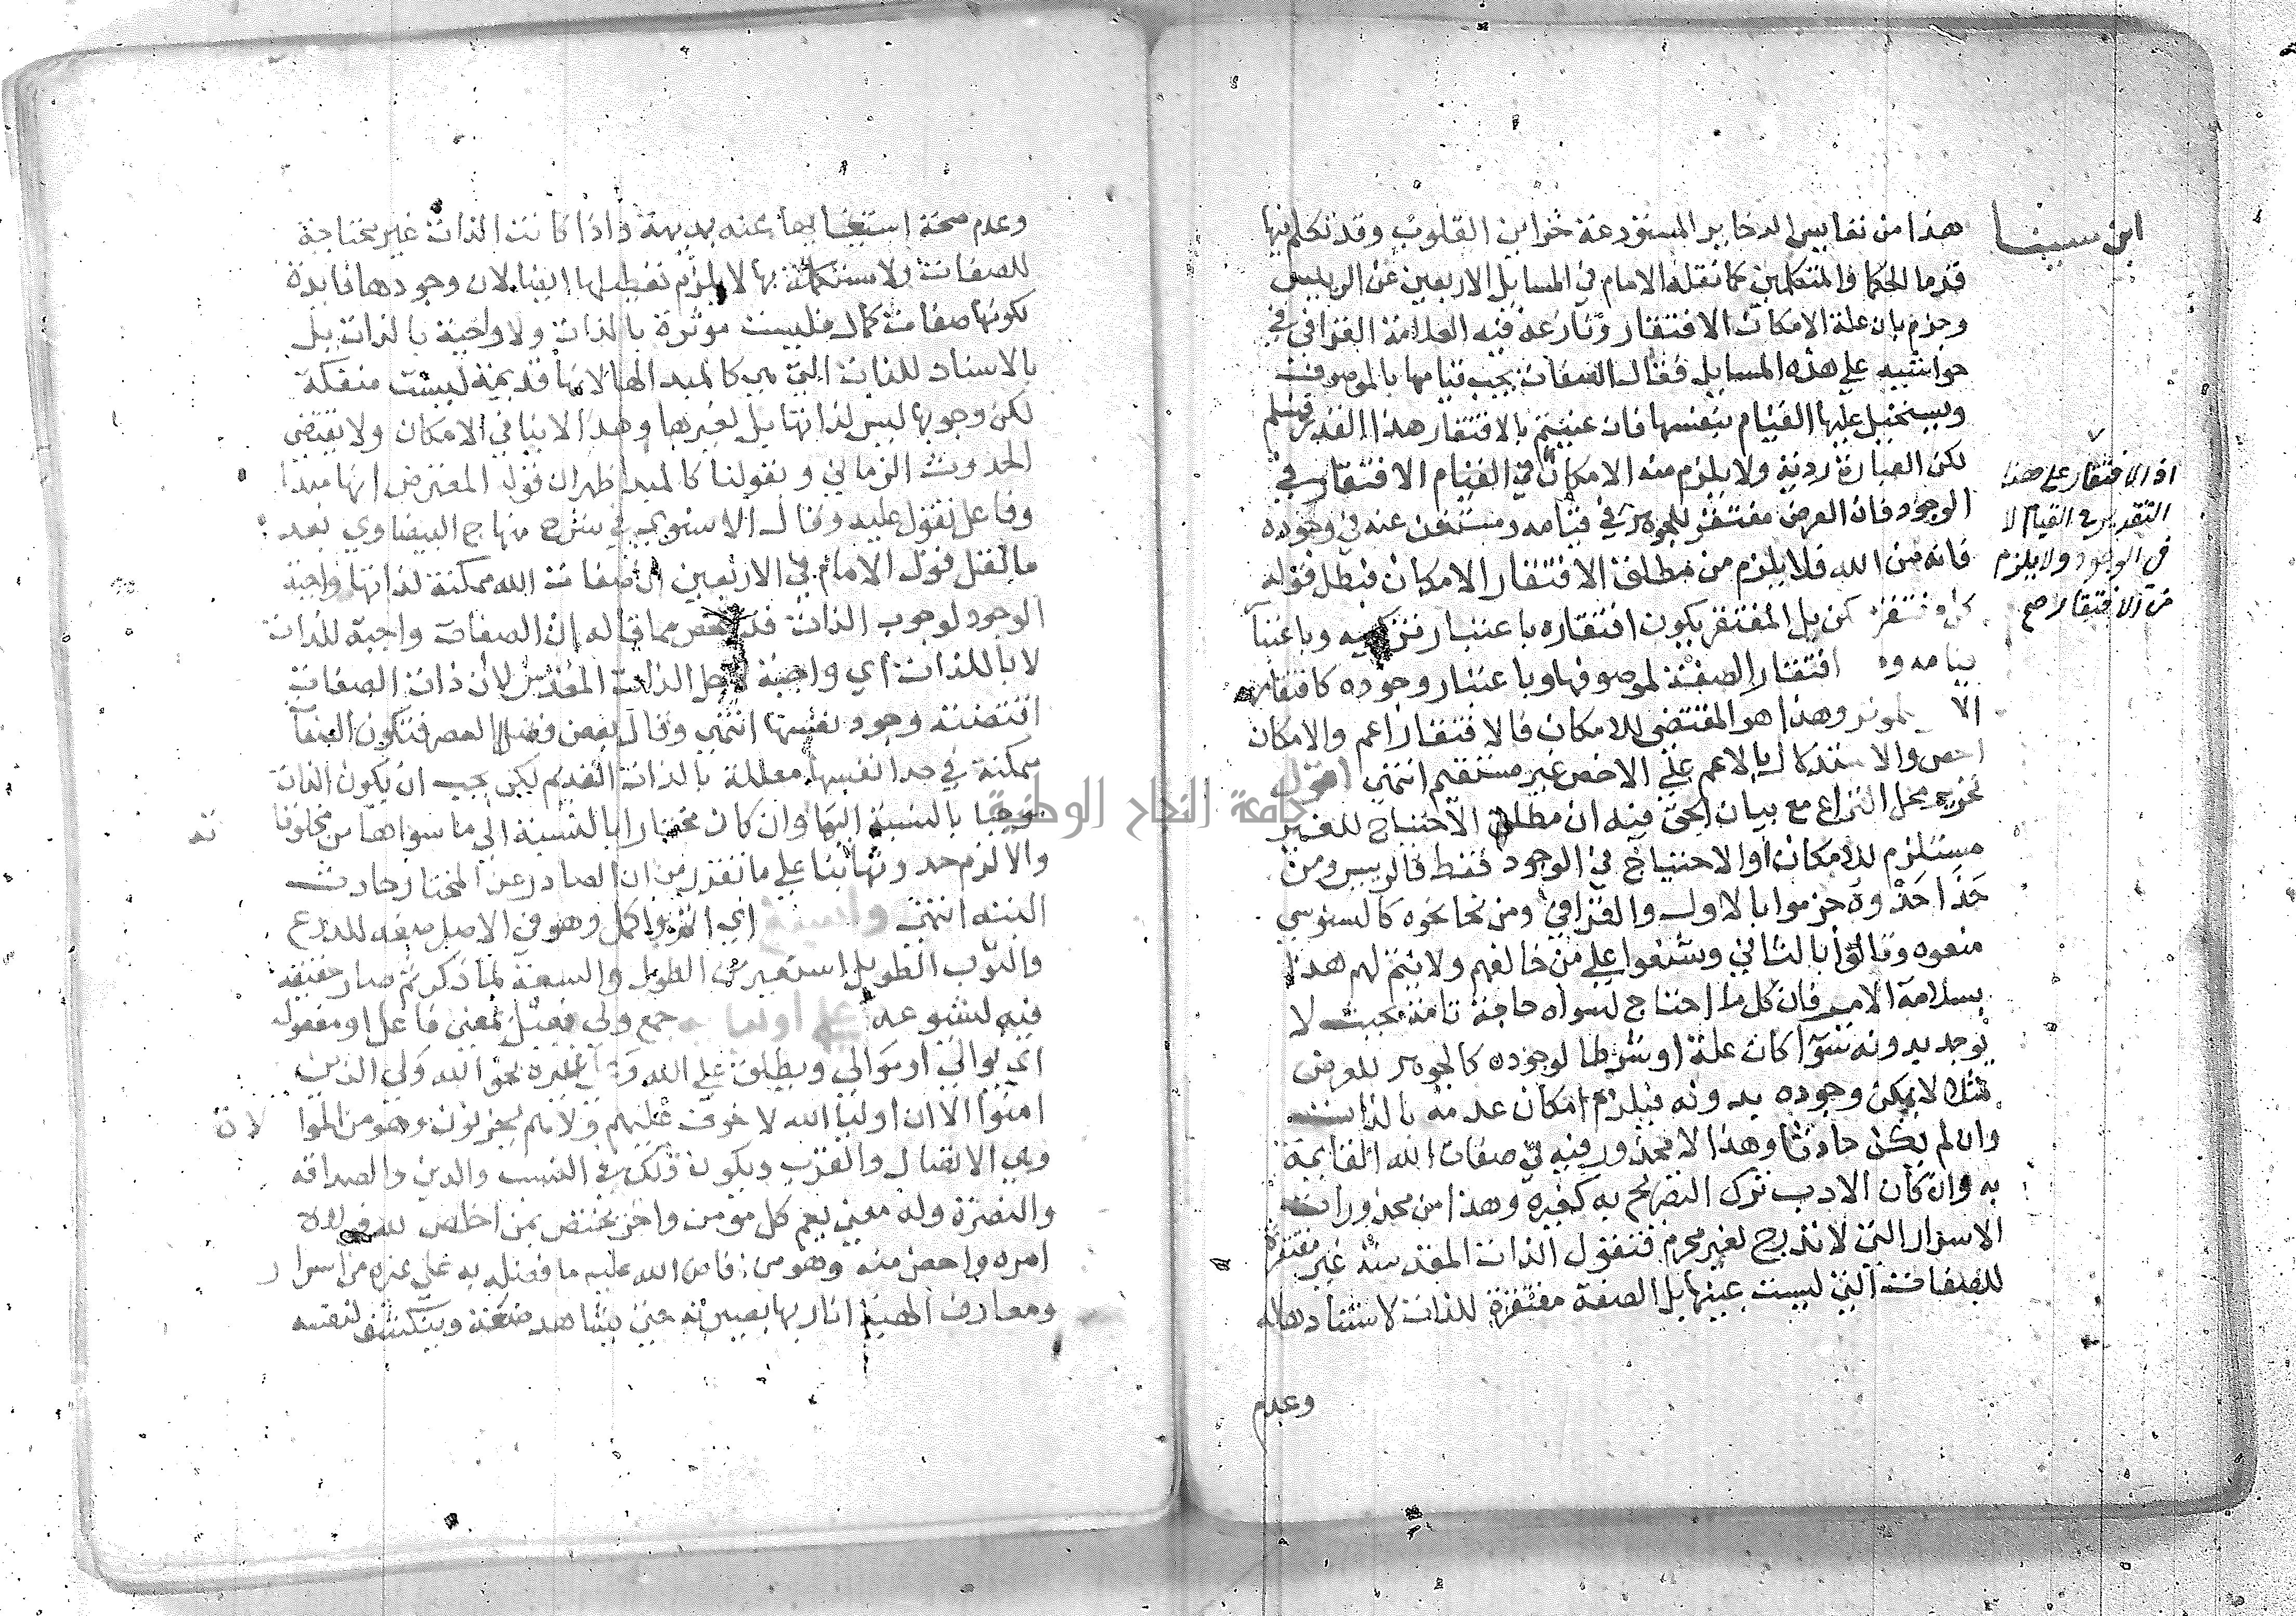 هذا من نفايس الدخاير المستودعة خزاين القلوب وقد تكلم فيها
ابن سينا
قدما الحكما والمتكلمين كما نقله الامام في المسايل الاربعين عن الرييس
وجزم بان علة الامكان الافتقار ونازعه فيه العلامة القرافي في
حواشيه علي هذه المسايل فقال الصفات يجب قيامها بالموصوف
ويستحيل عليها القيام بنفسها فان عنيتم بالافتقار هذا القدر فمسلم
لكن العبارة ردية ولا يلزم منه الامكان في القيام الافتقار في
اذ الافتقار علي هذا
التقدير في القيام لا
في الوجود ولا يلزم
من الافتقار صح
الوجود فان العرض مفتقر للجوهر في قيامه ومستغن عنه في وجوده
فانه من الله فلا يلزم من مطلق الافتقار الامكان فبطل قوله
كل مفتقر بل المفتقر يكون افتقاره باعتبار تركيبه وباعتبا
قيامه افتقار الصفة لموصوفها وباعتبار وجوده كافتقار
الا لموثر وهذا هو المقتضي للامكان فالافتقار اعم والامكان
اخص والاستدلال بالاعم علي الاخص غير مستقيم انتهي اقول
تحرير محل النزاع مع بيان الحق فيه ان مطلق الاحتياج للغير
مستلزم للامكان او الاحتياج في الوجود فقط فالرييس ومن
حذا حذوه جزموا بالاول والقرافي ومن نحا نحوه كالسنوسي
منعوه وقالوا بالثاني وشنعوا علي من خالفهم ولا يتم لهم هذا
بسلامة الامر فان كل ما احتاج لسواه حاجة تامة بحيث لا
يوجد بدونه سوا كان علة او شرطا لوجوده كالجوهر للعرض
مثلا لا يمكن وجوده بدونه فيلزم امكان عدمه بالذات
وان لم يكن حادثا وهذا لا محذور فيه في صفات الله القايمة
به وان كان الادب ترك التصريح به كغيره وهذا من محذورات
الاسرار التي لا تدرج لغير محرم فتقول الذات المقدسة غير مفتقرة
للصفات التي ليست عينها بل الصفة مفتقرة للذات لاستنادها له
وعدم
وعدم صحة استغنايها عنه بديهة واذا كانت الذات غير محتاجة
للصفات ولا مستكملة بها لا يلزم تعطيلها ايضا لان وجودها فايدة
لكونها صفات كمال فليست موثرة بالذات ولا واجبة بالذات بل
بالاسناد للذات التي هي كالمبدا لها لانها قديمة ليست منفكة
لكن وجوبها ليس لذاتها بل لغيرها وهذا لا ينافي الامكان ولا يقتضي
الحدوث الزماني وبقولنا كالمبدا ظهر ان قول المعترض انها مبدا
وفاعل تقول عليه وقال الاسنوي في شرح منهاج البيضاوي بعد
ما نقل قول الامام في الاربعين ان صفات الله ممكنة لذاتها واجبة
الوجود لوجوب الذات فد مما قاله ان الصفات واجبة للذات
لا بالذات اي واجبة لاجل الذات المقدس لان ذات الصفات
اقتضت وجود نفسها انتهي وقال بعض فضلا العصر فتكون الصفا
ممكنة في حد انفسها معللة بالذات القديم لكن يجب ان يكون الذات
موجبا بالنسبة اليها وان كان مختارا بالنسبة الي ما سواها من مخلوقا
ته
والا لزم حدوثها بنا علي ما تقرر من ان الصادر عن المختار حادث
البتة انتهي واسبغ اي اتم واكمل وهو في الاصل صفة للدرع
والثوب الطويل استعير من الطول والسعة لما ذكر ثم صار حقيقة
فيه لشيوعه علي اوليايه جمع ولي فعيل بمعني فاعل او مفعول
اي يوالي او موالي ويطلق علي الله وعلي غيره نحو الله ولي الذين
امنوا الا ان اوليا الله لا خوف عليهم ولا هم يحزنون وهو من الموا
لاة
وهي الاتصال والقرب ويكون ذلك في النسب والدين والصداقة
والنصرة وله معني يعم كل مومن واخر يختص بمن اخلص لله
امره واخص منه وهو من افاض الله عليه ما فضله به علي غيره من اسرار
ومعارف الهية انار بها بصيرته حتي يشاهد صنعه وينكشف لنفسه
جامعة النجاح الوطنية